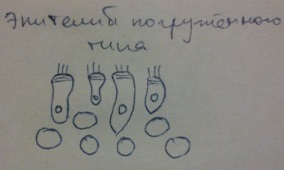 Эпителий погружённого
типа